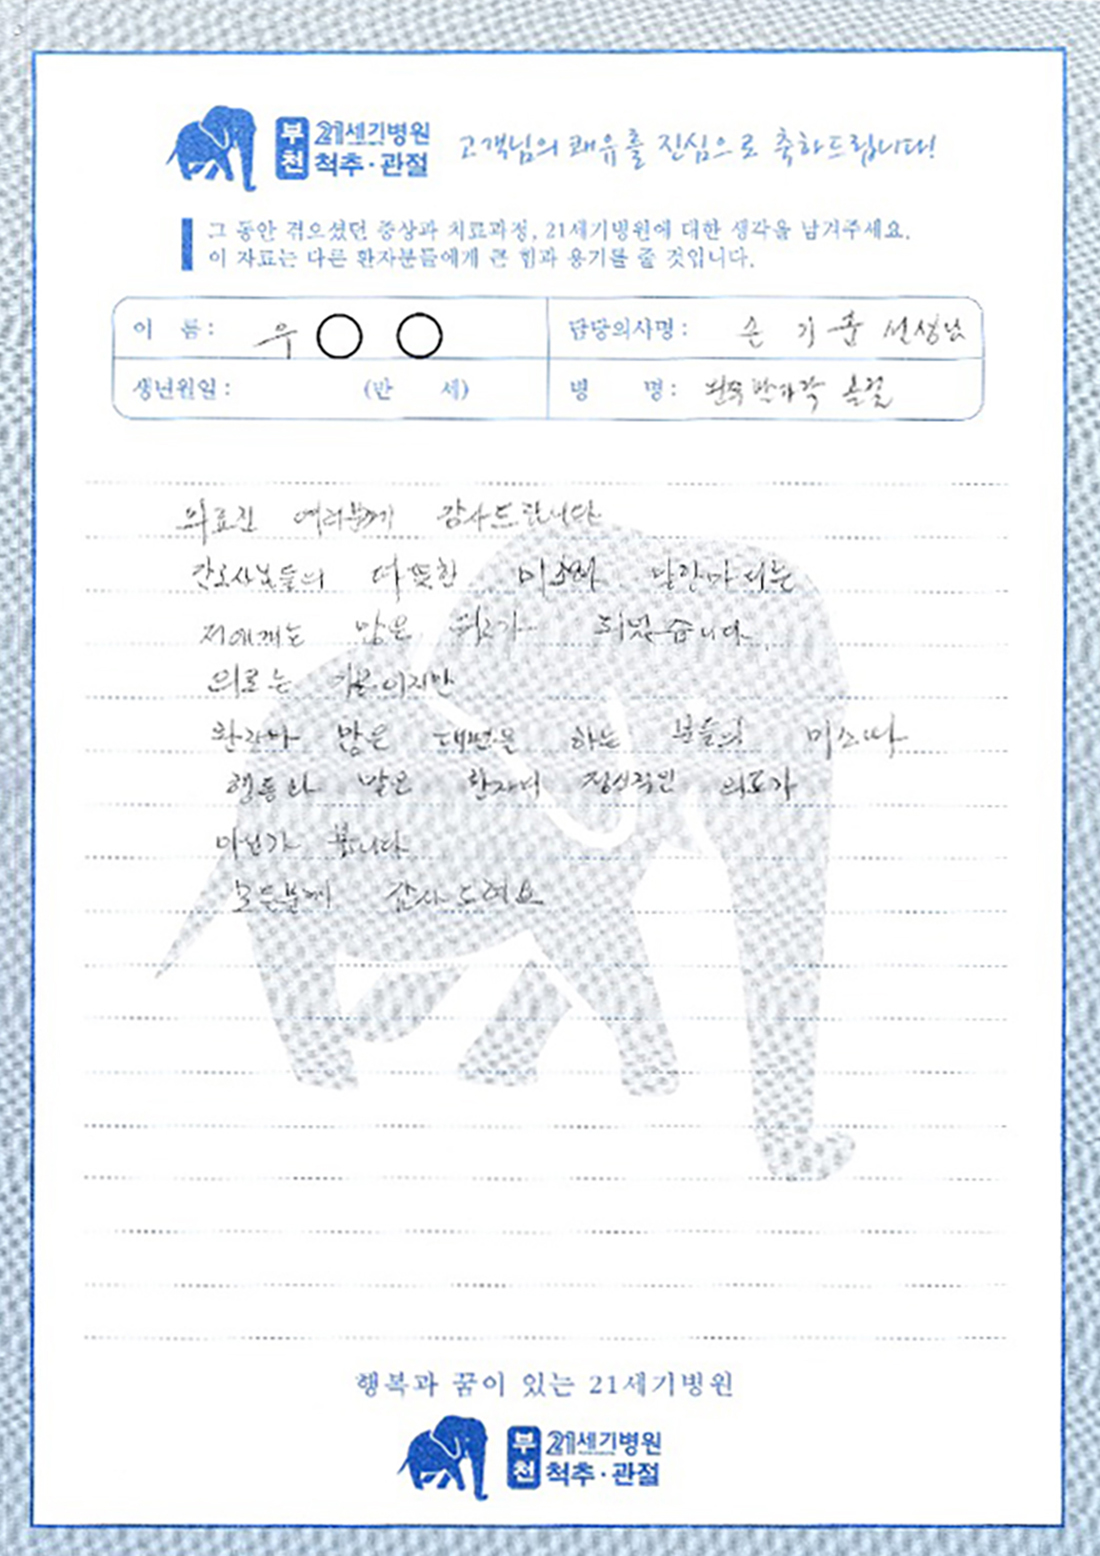 부천 21세기병원 척추·관절
고객님의 쾌유를 진심으로 축하드립니다!
그 동안 겪으셨던 증상과 치료과정, 21세기병원에 대한 생각을 남겨주세요.
이 자료는 다른 환자분들에게 큰 힘과 용기를 줄 것입니다.
이 름 : 우 ○ ○
담당의사명 : 손 기 훈 선생님
생년월일 : (만 세)
병 명 : 왼쪽 골절
의료진 여러분께 감사드립니다
간호사님들의 따뜻한 미소와 말한마디는
저에게는 많은 위로가 되었습니다.
의료는 기본이지만
환자와 많은 대면을 하는 분들의 미소나
행동과 말은 환자의 정신적인 의료가
아닌가 봅니다
모든분께 감사드려요
행복과 꿈이 있는 21세기병원
부천 21세기병원 척추·관절